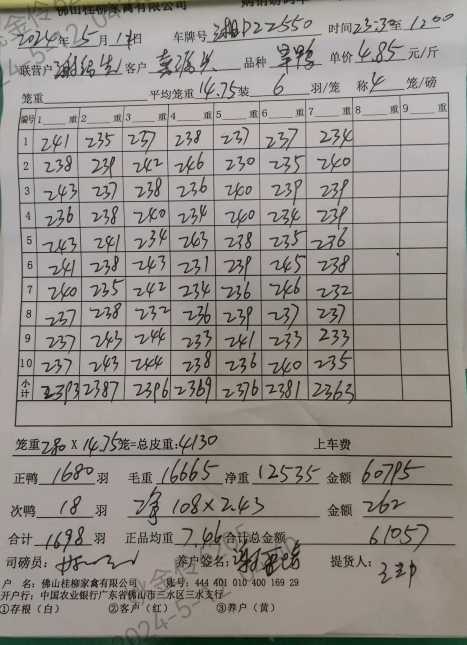 佛山桂柳家禽有限公司
2024年5月1日 车牌号 湘D22550 时间23:30至1200
联营户 客户 品种 单价4.85元/斤
笼重 平均笼重14.75装6羽/笼 称4笼/磅
编号 1 重 2 重 3 重 4 重 5 重 6 重 7 重 8 重 9 重
1 241 235 237 238 237 237 234
2 238 239 242 246 230 235 240
3 243 237 238 236 240 239 239
4 236 238 240 234 240 234 239
5 243 241 234 243 238 235 236
6 241 238 243 231 239 245 238
7 240 235 242 234 236 246 232
8 237 238 232 236 239 237 237
9 237 243 244 233 241 233 233
10 237 243 244 238 236 240 235
小计 2393 2387 2396 2369 2376 2381 2363
笼重280X14.75笼=总皮重:4130 上车费
正鸭1680羽 毛重16665净重12535金额60795
次鸭18羽 净108×2.43 金额262
合计1698羽 正品均重7.46合计总金额61057
司磅员: 养户签名: 提货人:
户 名:佛山桂柳家禽有限公司 账号:444 401 010 400 169 29
开户行:中国农业银行广东省佛山市三水区三水支行
①存根(白) ②客户(红) ③养户(黄)